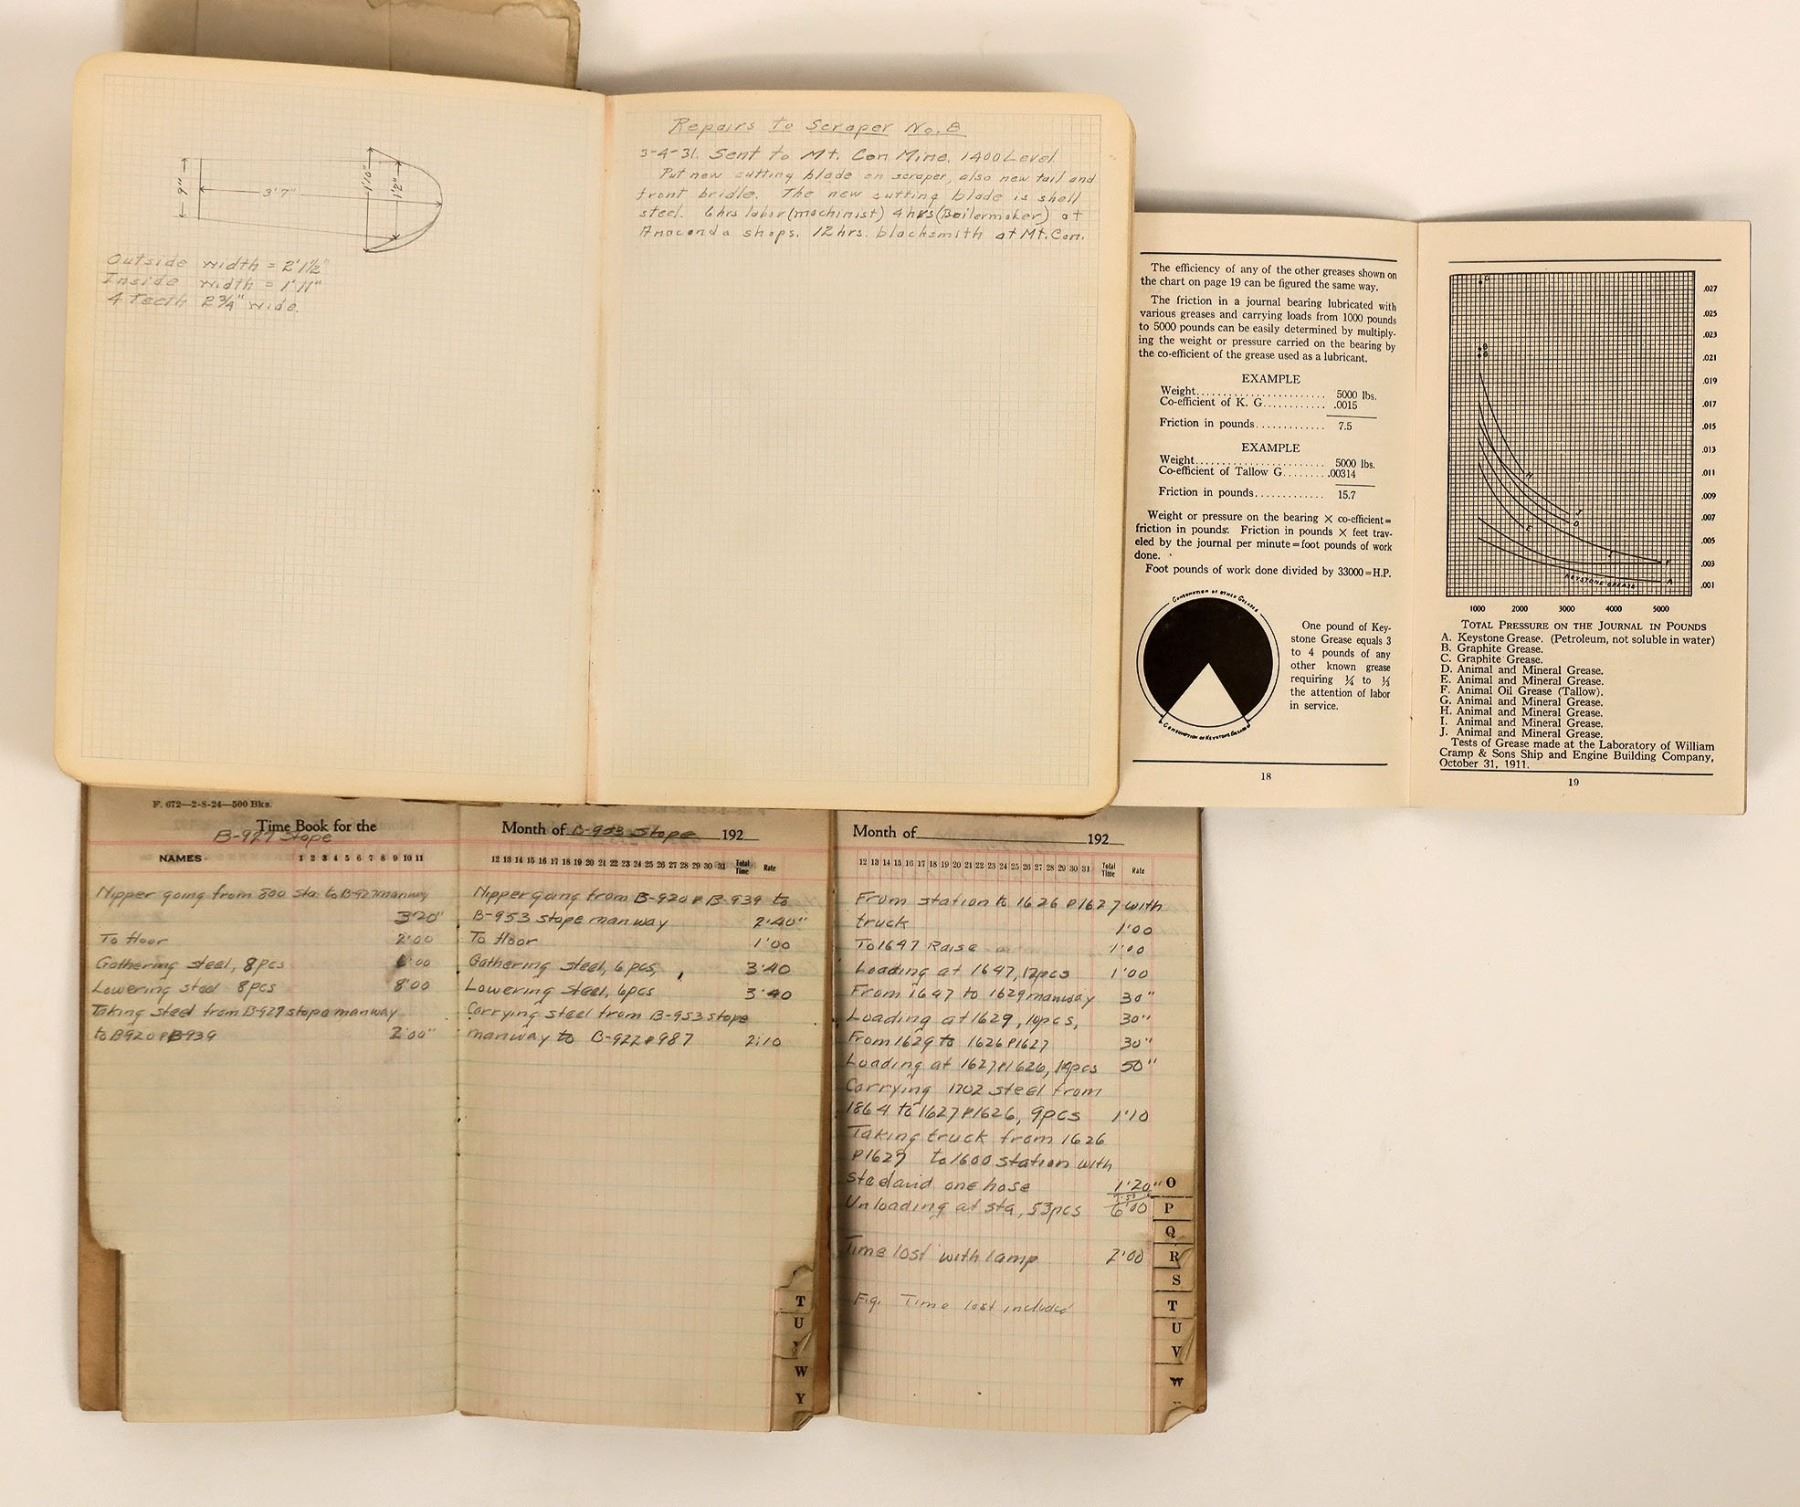 9"
3'7"
1'10"
12"
Outside width = 2'1½"
Inside width = 1'11"
4 Teeth 2¾" wide.
Repairs to Scraper No. 8
3-4-31. Sent to Mt. Con Mine. 1400 Level
Put new cutting blade on scraper, also new tail and
front bridle. The new cutting blade is shell
steel. 6 hrs labor (machinist) 4 hrs (Boilermaker) at
Anaconda shops. 12 hrs. blacksmith at Mt. Con.
The efficiency of any of the other greases shown on
the chart on page 19 can be figured the same way.
The friction in a journal bearing lubricated with
various greases and carrying loads from 1000 pounds
to 5000 pounds can be easily determined by multiply-
ing the weight or pressure carried on the bearing by
the co-efficient of the grease used as a lubricant.
EXAMPLE
Weight........................ 5000 lbs.
Co-efficient of K. G............ .0015
Friction in pounds............. 7.5
EXAMPLE
Weight........................ 5000 lbs.
Co-efficient of Tallow G........ .00314
Friction in pounds............. 15.7
Weight or pressure on the bearing × co-efficient=
friction in pounds: Friction in pounds × feet trav-
eled by the journal per minute=foot pounds of work
done.
Foot pounds of work done divided by 33000=H.P.
CONSUMPTION OF OTHER GREASES
CONSUMPTION OF KEYSTONE GREASE
One pound of Key-
stone Grease equals 3
to 4 pounds of any
other known grease
requiring ¼ to ⅓
the attention of labor
in service.
18
.027
.025
.023
.021
.019
.017
.015
.013
.011
.009
.007
.005
.003
.001
C
B
H
J
D
E
F
A
KEYSTONE GREASE
1000 2000 3000 4000 5000
TOTAL PRESSURE ON THE JOURNAL IN POUNDS
A. Keystone Grease. (Petroleum, not soluble in water)
B. Graphite Grease.
C. Graphite Grease.
D. Animal and Mineral Grease.
E. Animal and Mineral Grease.
F. Animal Oil Grease (Tallow).
G. Animal and Mineral Grease.
H. Animal and Mineral Grease.
I. Animal and Mineral Grease.
J. Animal and Mineral Grease.
Tests of Grease made at the Laboratory of William
Cramp & Sons Ship and Engine Building Company,
October 31, 1911.
19
F. 672—2-8-24—500 Bks.
Time Book for the
B-927 Stope
NAMES 1 2 3 4 5 6 7 8 9 10 11
Nipper going from 800 Sta. to B-927 manway
3'20"
To floor 2'00
Gathering steel, 8 pcs 6'00
Lowering steel 8 pcs 8'00
Taking Steel from B-927 stope manway
to B920 & B939 2'00"
Month of B-953 Stope 192
12 13 14 15 16 17 18 19 20 21 22 23 24 25 26 27 28 29 30 31 Total Time Rate
Nipper going from B-920 & B-939 to
B-953 stope manway 2'40"
To floor 1'00
Gathering steel, 6 pcs, 3'40
Lowering steel, 6 pcs 3'40
Carrying steel from B-953 stope
manway to B-922 & 987 2'10
Month of 192
12 13 14 15 16 17 18 19 20 21 22 23 24 25 26 27 28 29 30 31 Total Time Rate
From station to 1626 & 1627 with
truck 1'00
To 1647 Raise 1'00
Loading at 1647, 12 pcs 1'00
From 1647 to 1629 manway 30"
Loading at 1629, 10 pcs, 30"
From 1629 to 1626 & 1627 30"
Loading at 1627 & 1626, pcs 50"
Carrying 1702 steel from
1864 to 1627 & 1626, 9 pcs 1'10
Taking truck from 1626
& 1627 to 1600 station with
steel and one hose 1'20"
Unloading at sta, 53 pcs 6'00
Time lost with lamp 2'00
Fig. Time lost included
T
U
W
Y
O
P
Q
R
S
T
U
V
W